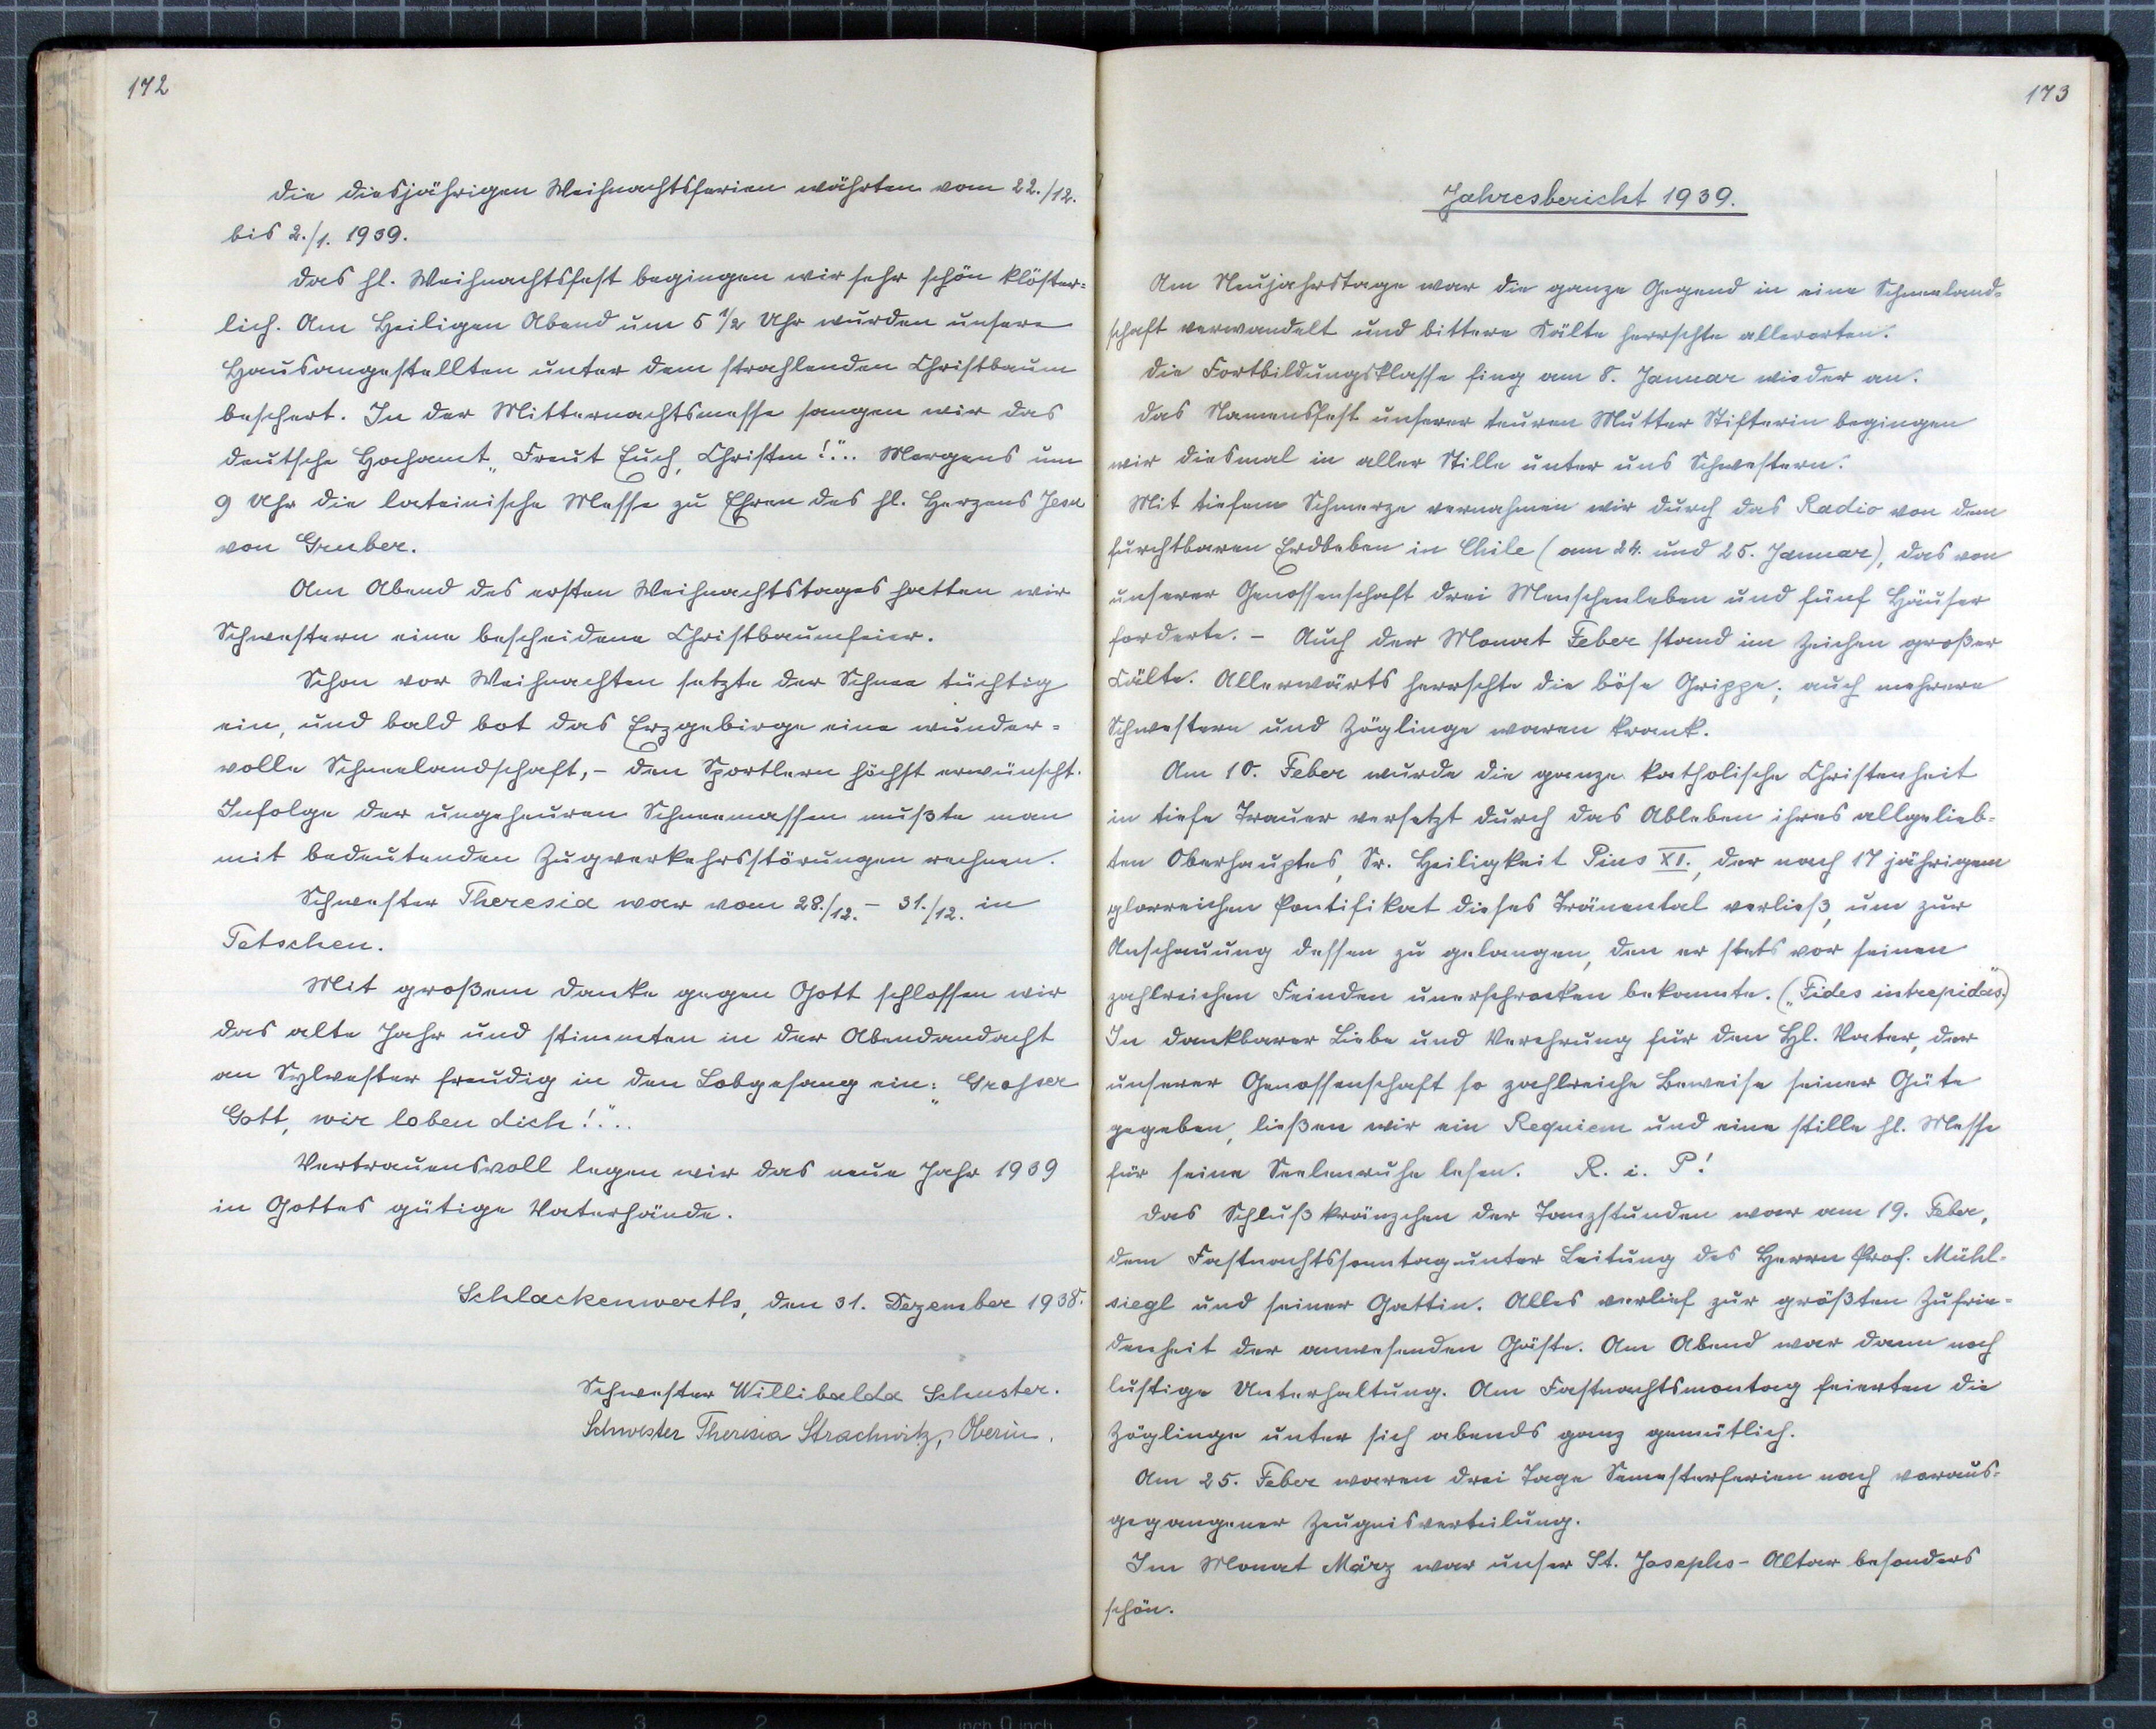 172
Die diesjährigen Weihnachtsferien währten vom 22./12.
bis 2./1. 1939.
Das hl. Weihnachtsfest begingen wir sehr schön klöster=
lich. Am Heiligen Abend um 5 1/2 Uhr wurden unsere
Hausangestellten unter dem strahlenden Christbaum
beschert. In der Mitternachtsmesse sangen wir das
deutsche Hochamt „Freut Euch, Christen!"... Morgens um
9 Uhr die lateinische Messe zu Ehren des hl. Herzens Jesu
von Gruber.
Am Abend des ersten Weihnachtstages hatten wir
Schwestern eine bescheidene Christbaumfeier.
Schon vor Weihnachten setzte der Schnee tüchtig
ein, und bald bot das Erzgebirge eine wunder=
volle Schneelandschaft, – den Sportlern höchst erwünscht.
Infolge der ungeheuren Schneemassen mußte man
mit bedeutenden Zugverkehrsstörungen rechnen.
Schwester Theresia war vom 28./12. – 31./12. in
Tetschen.
Mit großem Danke gegen Gott schlossen wir
das alte Jahr und stimmten in der Abendandacht
an Sylvester freudig in den Lobgesang ein: „Grosser
Gott, wir loben dich!"...
Vertrauensvoll legen wir das neue Jahr 1939
in Gottes gütige Vaterhände.
Schlackenwerth, den 31. Dezember 1938.
Schwester Willibalda Schuster.
Schwester Theresia Strachwitz, Oberin.
173
Jahresbericht 1939.
Am Neujahrstage war die ganze Gegend in eine Schneeland=
schaft verwandelt und bittere Kälte herrschte allerorten.
Die Fortbildungsklasse fing am 8. Januar wieder an.
Das Namensfest unserer teuren Mutter Stifterin begingen
wir diesmal in aller Stille unter uns Schwestern.
Mit tiefem Schmerze vernahmen wir durch das Radio von dem
furchtbaren Erdbeben in Chile (am 24. und 25. Januar), das von
unserer Genossenschaft drei Menschenleben und fünf Häuser
forderte. – Auch der Monat Feber stand im Zeichen großer
Kälte. Allerwärts herrschte die böse Grippe; auch mehrere
Schwestern und Zöglinge waren krank.
Am 10. Feber wurde die ganze katholische Christenheit
in tiefe Trauer versetzt durch das Ableben ihres allgelieb=
ten Oberhauptes, Sr. Heiligkeit Pius XI., der nach 17 jährigem
glorreichen Pontifikat dieses Tränental verließ, um zur
Anschauung dessen zu gelangen, den er stets vor seinen
zahlreichen Feinden unerschrocken bekannte. („Fides intrepida".)
In dankbarer Liebe und Verehrung für den Hl. Vater, der
unserer Genossenschaft so zahlreiche Beweise seiner Güte
gegeben, ließen wir ein Requiem und eine stille hl. Messe
für seine Seelenruhe lesen. R. i. P!
Das Schlußkränzchen der Tanzstunden war am 19. Feber,
dem Fastnachtssonntag unter Leitung des Herrn Prof. Mühl=
siegl und seiner Gattin. Alles verlief zur größten Zufrie=
denheit der anwesenden Gäste. Am Abend war dann noch
lustige Unterhaltung. Am Fastnachtsmontag feierten die
Zöglinge unter sich abends ganz gemütlich.
Am 25. Feber waren drei Tage Semesterferien nach voraus=
gegangener Zeugnisverteilung.
Im Monat März war unser St. Josephs-Altar besonders
schön.
8 7 6 5 4 3 2 1 inch 0 inch 1 2 3 4 5 6 7 8 9